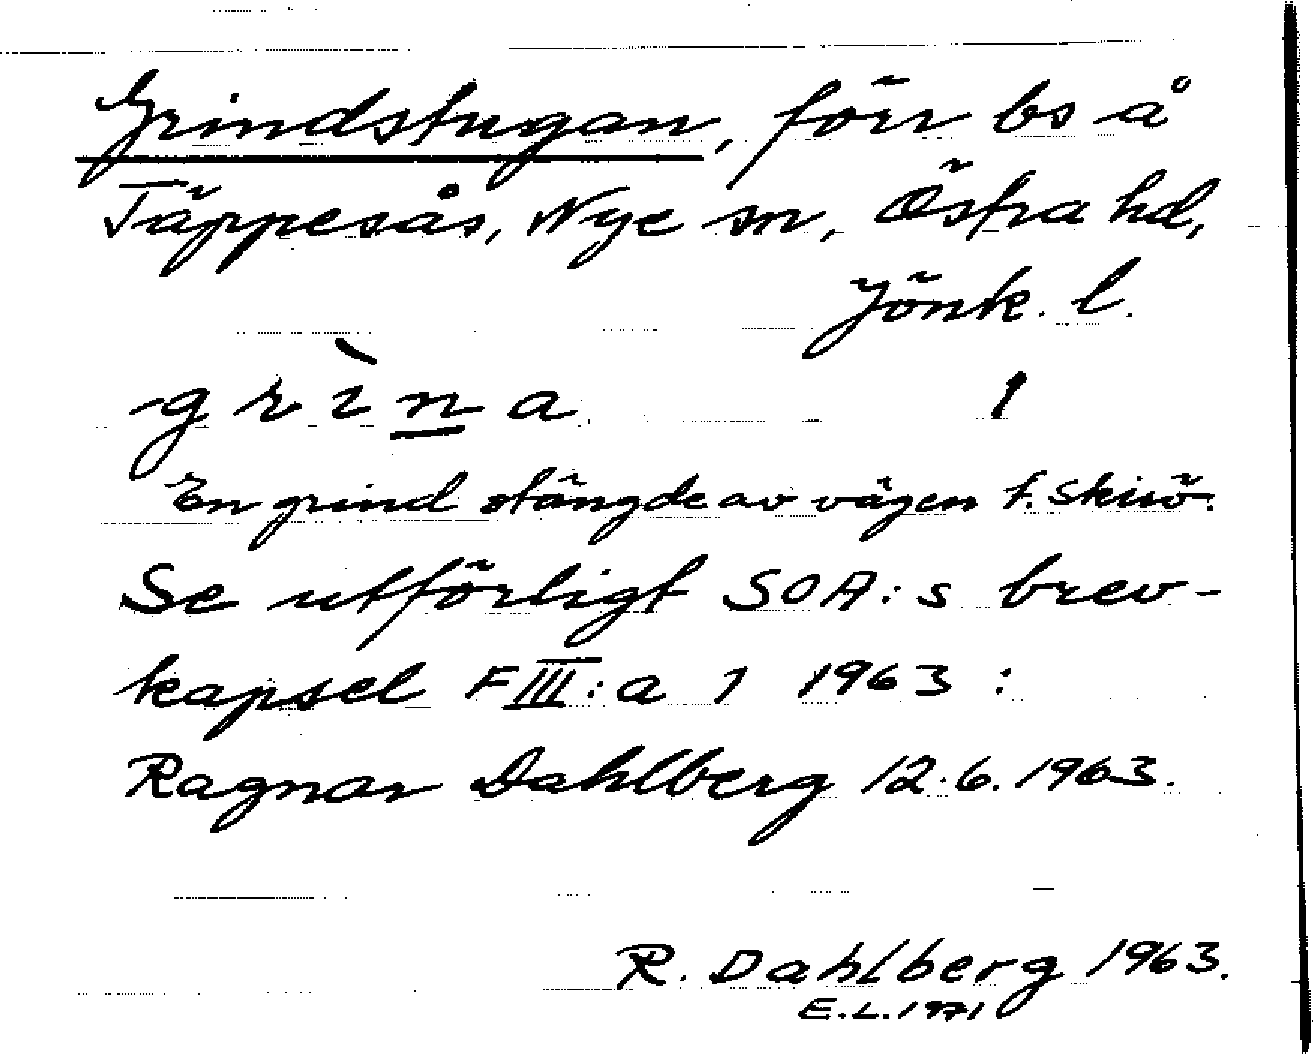 Grindstugan, förr bs å
Täppesås, Nye sn, Östra hd,
Jönk. l.
-grìna 1
En grind stängde av vägen t. Skirö.
Se utförligt SOA:s brev-
kapsel F III:a 1 1963:
Ragnar Dahlberg 12.6.1963.
R. Dahlberg 1963.
E.L.1971